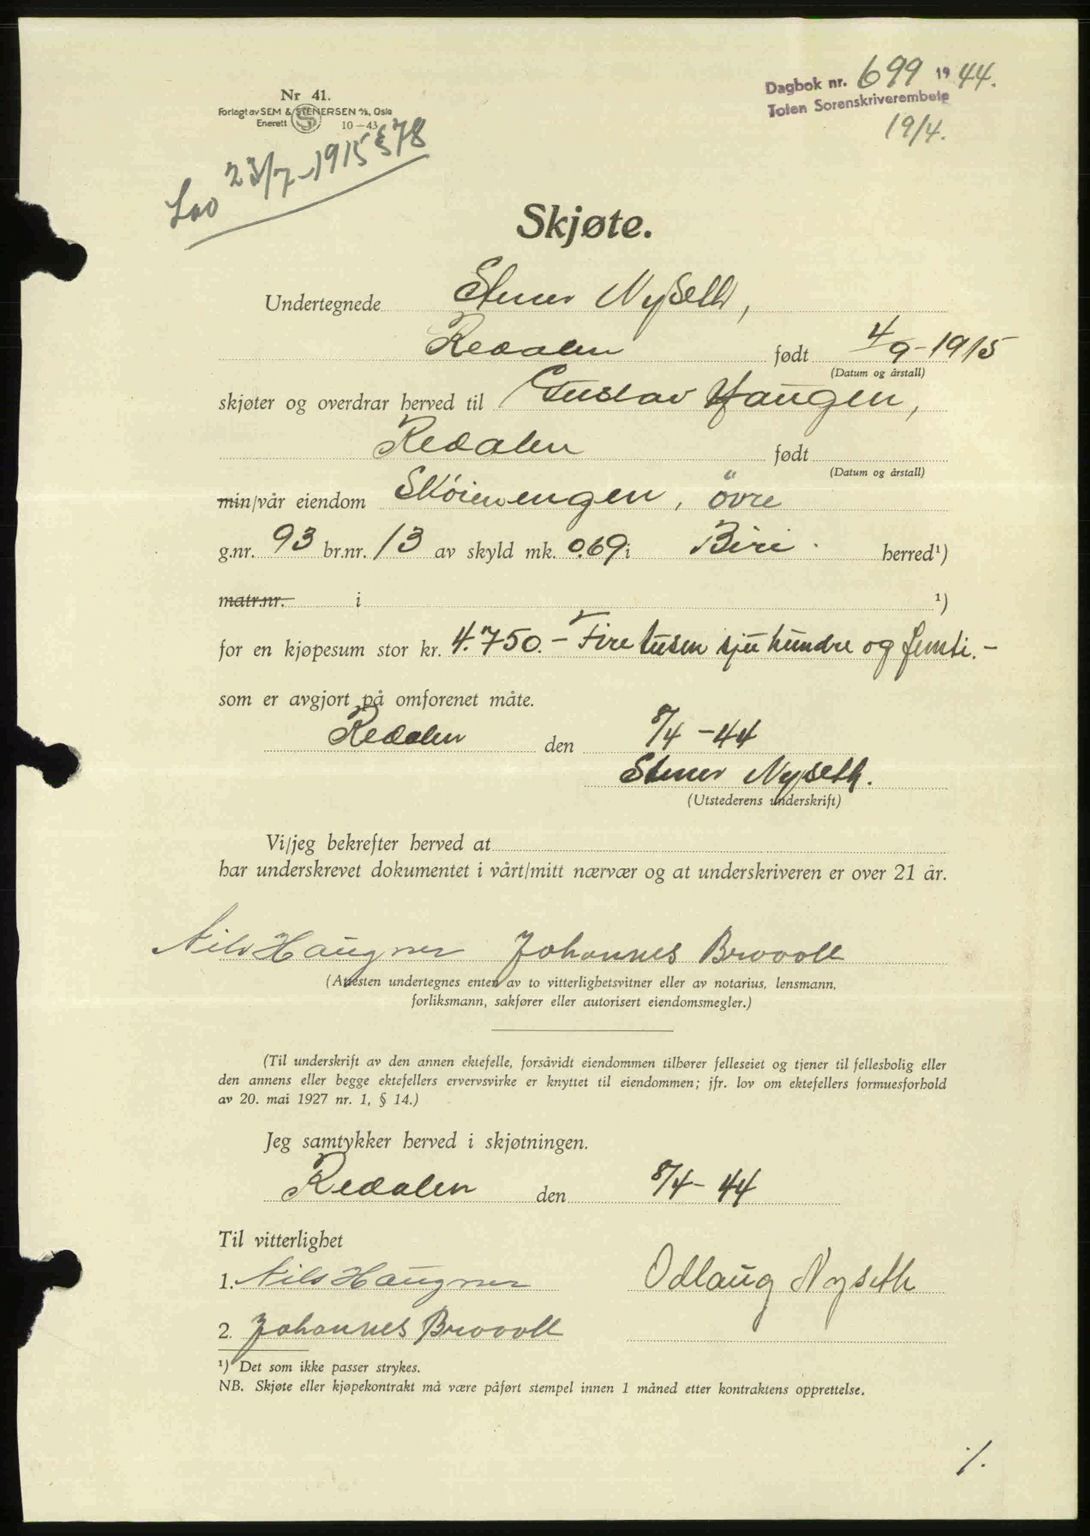 Dagbok nr. 699 1944.
Toten Sorenskriverembete
19/4.
Nr 41.
Forlagt av SEM & STENERSEN A/S, Oslo
Enerett S 10-43
Lov 23/7-1915 § 78
Skjøte.
Undertegnede Stener Nyseth,
Redalen født 4/9-1915
(Datum og årstall)
skjøter og overdrar herved til Gustav Haugen,
Redalen født
(Datum og årstall)
min/vår eiendom Skøienengen, övre
g.nr. 93 br.nr. 13 av skyld mk. 0.69 i Biri. herred¹)
matr.nr. i ¹)
for en kjøpesum stor kr. 4.750.- Fire tusen sju hundre og femti.-
som er avgjort på omforenet måte.
Redalen den 8/4-44
Stener Nyseth.
(Utstederens underskrift)
Vi/jeg bekrefter herved at
har underskrevet dokumentet i vårt/mitt nærvær og at underskriveren er over 21 år.
Nils Haugner Johannes Brovoll
(Attesten undertegnes enten av to vitterlighetsvitner eller av notarius, lensmann,
forliksmann, sakfører eller autorisert eiendomsmegler.)
(Til underskrift av den annen ektefelle, forsåvidt eiendommen tilhører felleseiet og tjener til fellesbolig eller
den annens eller begge ektefellers ervervsvirke er knyttet til eiendommen; jfr. lov om ektefellers formuesforhold
av 20. mai 1927 nr. 1, § 14.)
Jeg samtykker herved i skjøtningen.
Redalen den 8/4-44
Til vitterlighet
1. Nils Haugner Odlaug Nyseth
2. Johannes Brovoll
¹) Det som ikke passer strykes.
NB. Skjøte eller kjøpekontrakt må være påført stempel innen 1 måned etter kontraktens opprettelse.